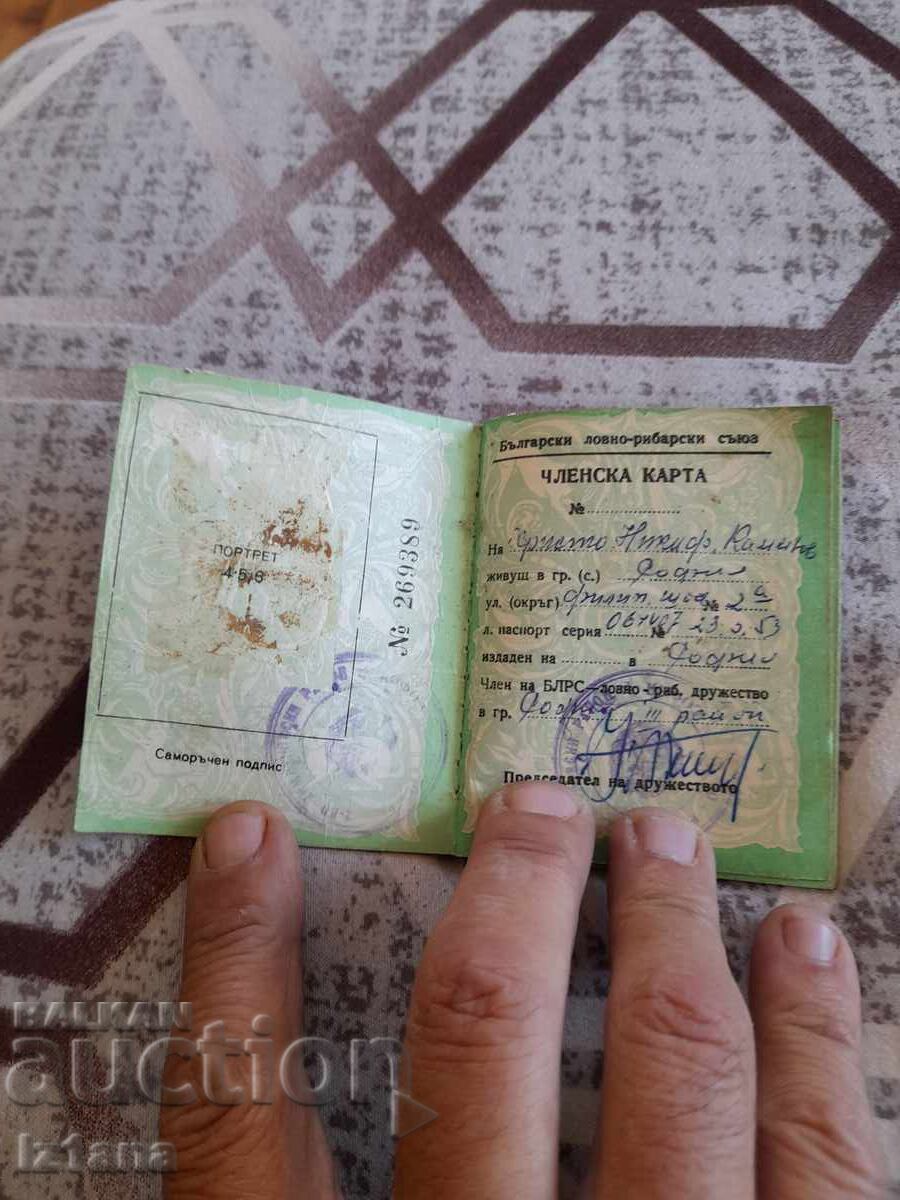 ПОРТРЕТ
4-5/6
№ 269389
Саморъчен подпис
Български ловно-рибарски съюз
ЧЛЕНСКА КАРТА
№
На Христо Никиф.
живущ в гр. (с.) София
ул. (окръг) № 2а
л. паспорт серия №
издаден на в София
Член на БЛРС—ловно-риб. дружество
в гр. София III район
Председател на дружеството
BALKAN
auction
iz1ana